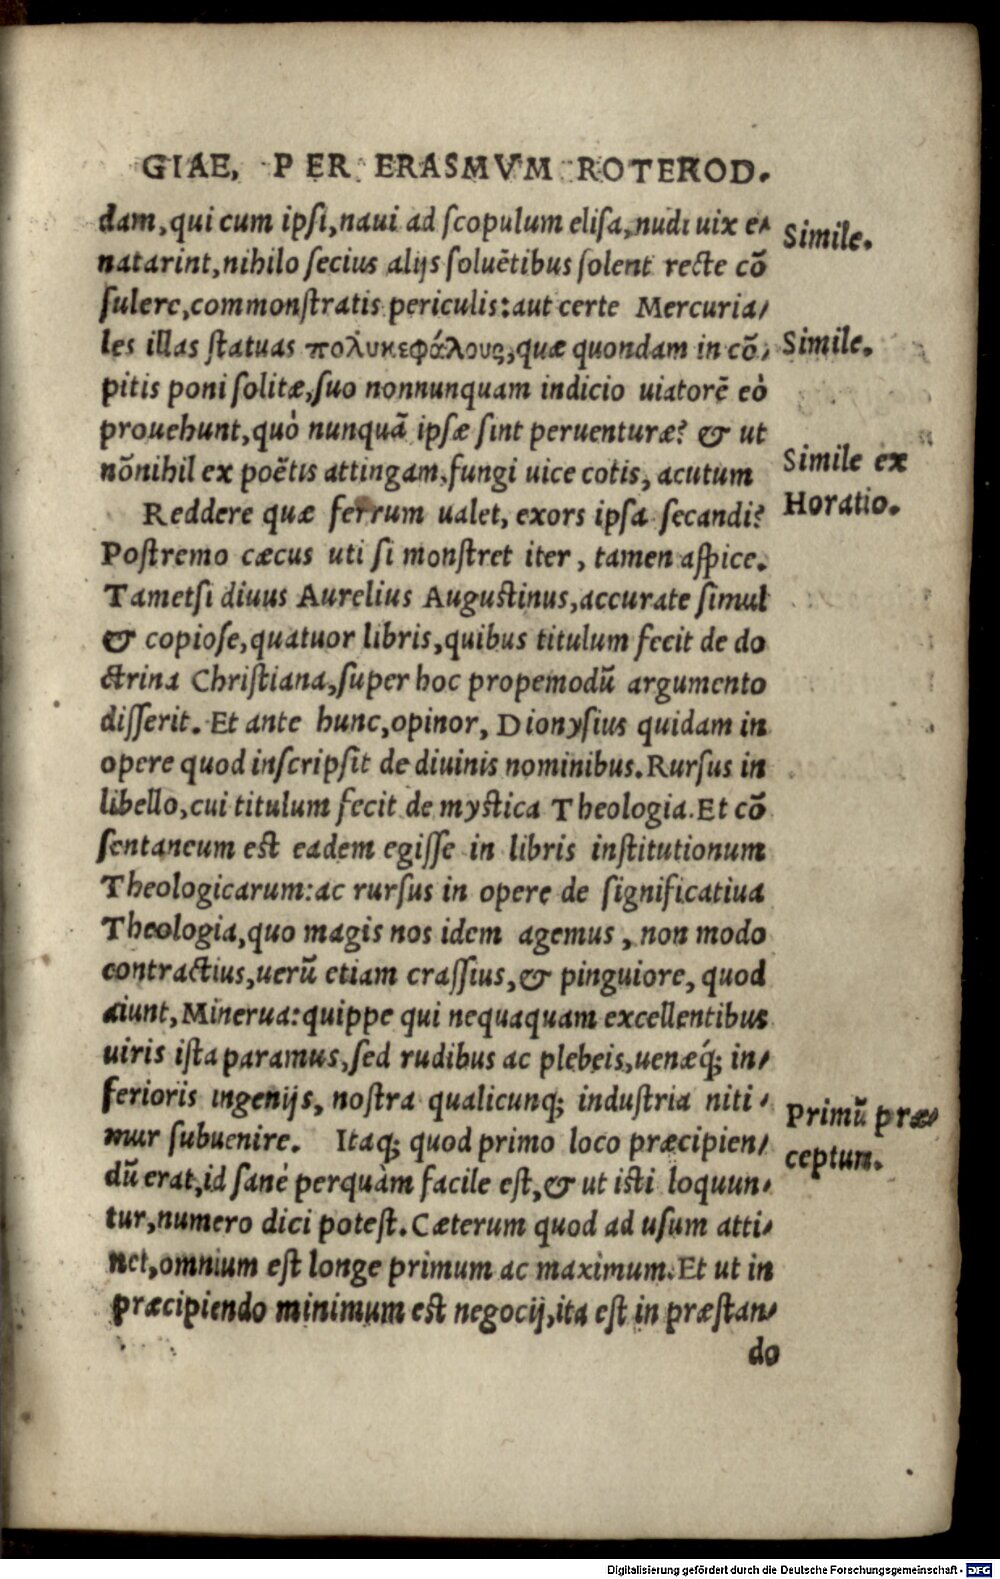 GIAE, PER ERASMVM ROTEROD.
dam, qui cum ipsi, naui ad scopulum elisa, nudi uix e-
Simile.
natarint, nihilo secius alijs soluētibus solent recte cō
sulere, commonstratis periculis: aut certe Mercuria-
les illas statuas πολυκεφάλους, quæ quondam in cō-
Simile.
pitis poni solitæ, suo nonnunquam indicio uiatorē eò
prouehunt, quò nunquā ipsæ sint peruenturæ? & ut
nōnihil ex poëtis attingam, fungi uice cotis, acutum
Simile ex
Horatio.
Reddere quæ ferrum ualet, exors ipsa secandi?
Postremo cæcus uti si monstret iter, tamen aspice.
Tametsi diuus Aurelius Augustinus, accurate simul
& copiose, quatuor libris, quibus titulum fecit de do
ctrina Christiana, super hoc propemodū argumento
disserit. Et ante hunc, opinor, Dionysius quidam in
opere quod inscripsit de diuinis nominibus. Rursus in
libello, cui titulum fecit de mystica Theologia. Et cō
sentaneum est eadem egisse in libris institutionum
Theologicarum: ac rursus in opere de significatiua
Theologia, quo magis nos idem agemus, non modo
contractius, uerū etiam crassius, & pinguiore, quod
aiunt, Minerua: quippe qui nequaquam excellentibus
uiris ista paramus, sed rudibus ac plebeis, uenæq́; in-
ferioris ingenijs, nostra qualicunq; industria niti-
mur subuenire. Itaq; quod primo loco præcipien-
Primū præ-
ceptum.
dū erat, id sanè perquàm facile est, & ut isti loquun-
tur, numero dici potest. Cæterum quod ad usum atti-
net, omnium est longe primum ac maximum. Et ut in
præcipiendo minimum est negocij, ita est in præstan-
do
Digitalisierung gefördert durch die Deutsche Forschungsgemeinschaft - DFG